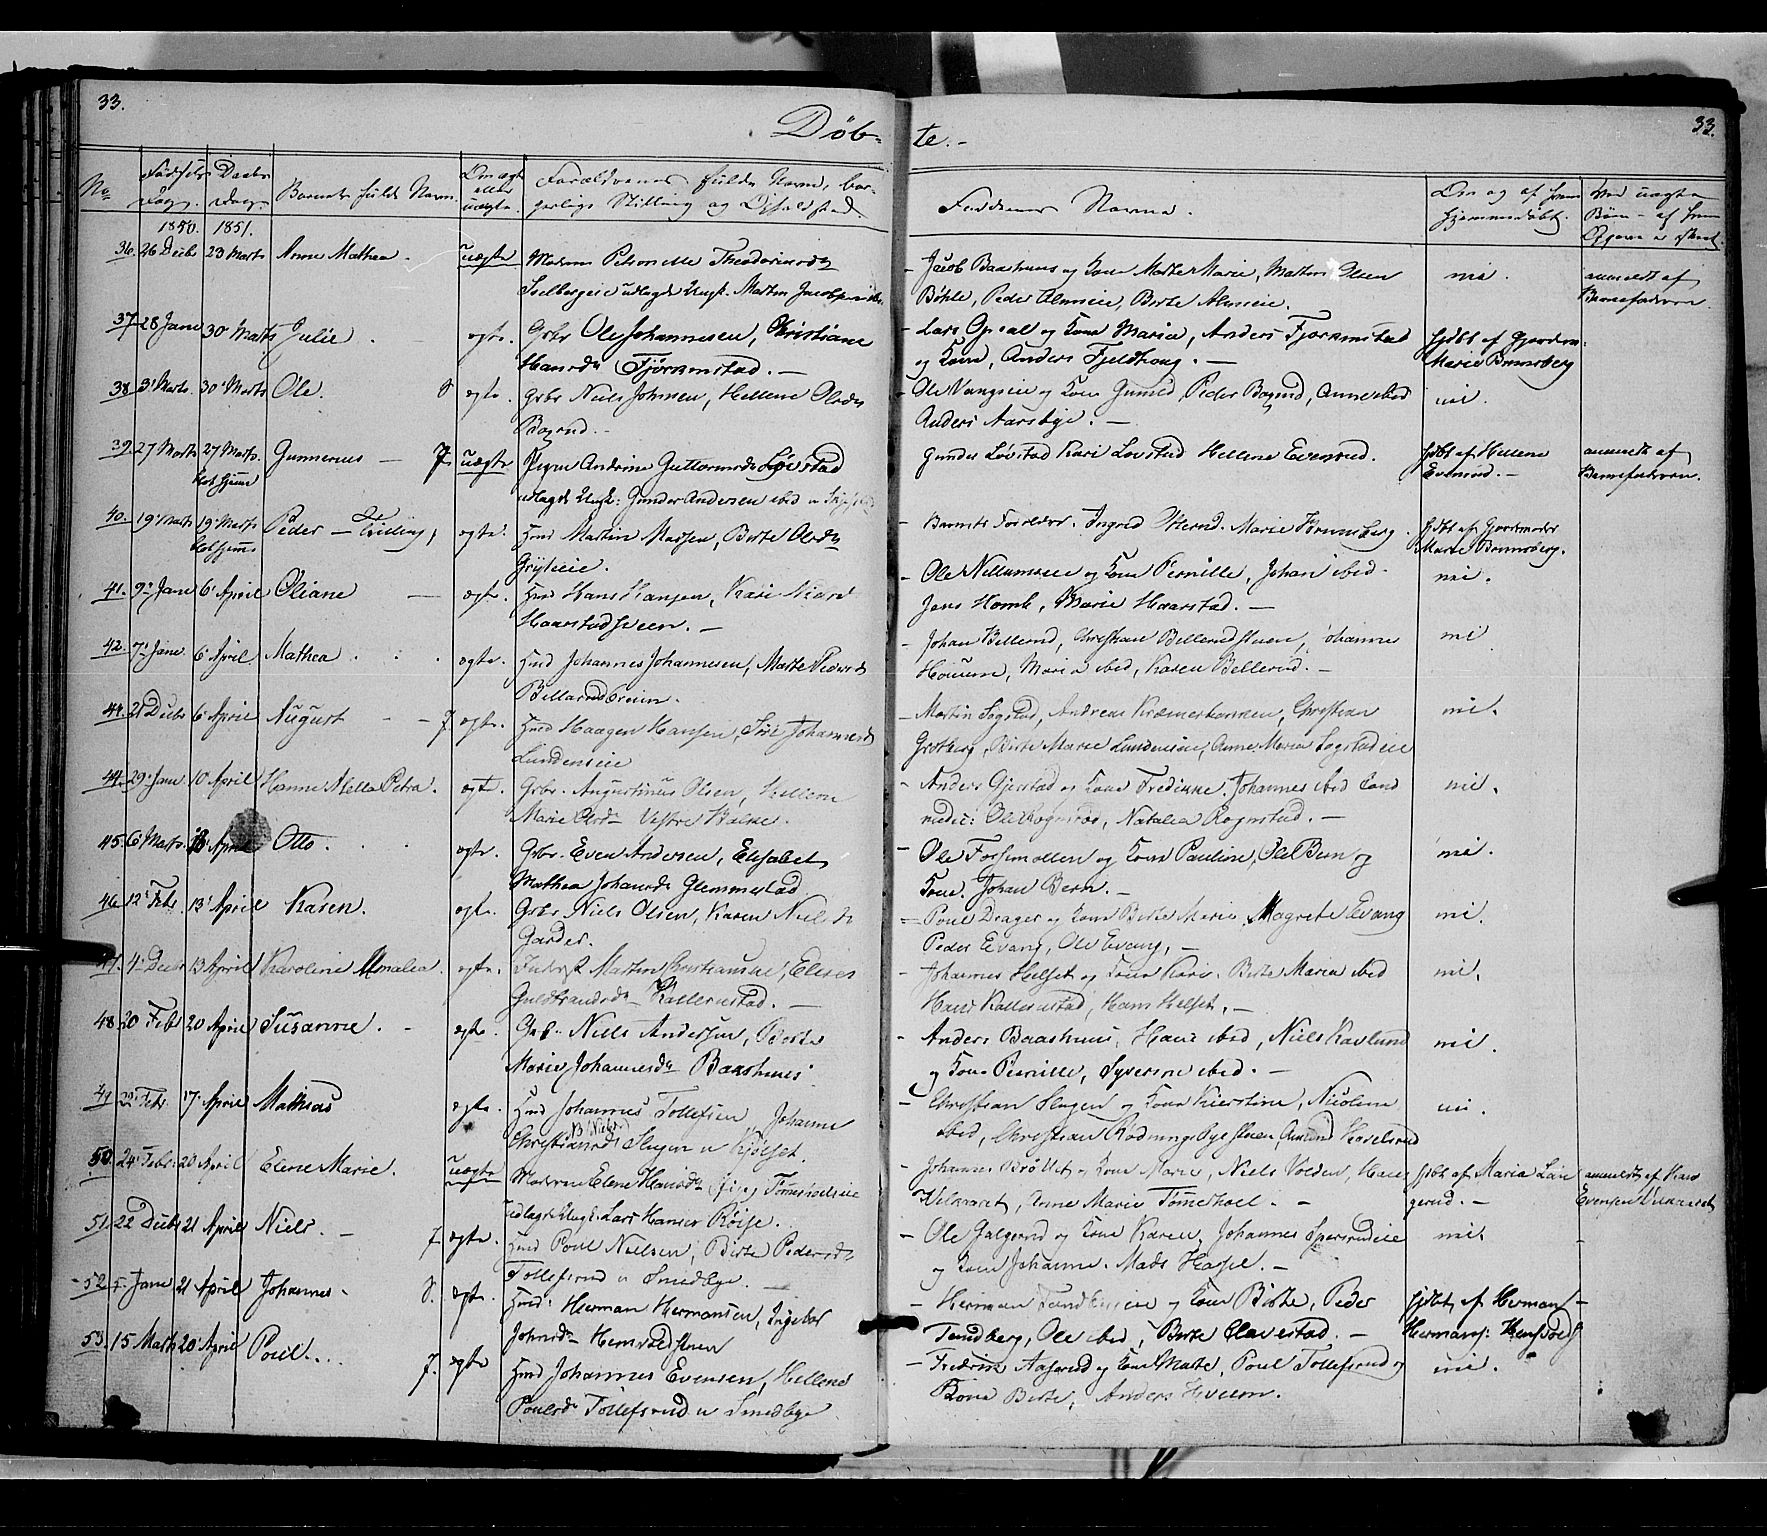 33.
33.
Døb-
te.-
No
Fødsels
Dag.
Daabs
Dag.
Barnets fulde Navn.
Om ægte
eller
uægte.
Forældrenes fulde Navn, bor-
gerlige Stilling og Opholdsted
Faddernes Navne.
Om og af hvem
hjemmedøbt.
Ved uægte
Børn - af hvem
Opgave er skeet.
1850. 1851.
36. 26 Decbr 23 Marts Anne Mathea. uægte
Moderen Petronelle
udlagt Ungk. Martin
- Jacob Baashuus og Kone Marthe Marie, Mathias Olsen
Bøhle, Peder Almseie, Birte Almseie.
nei.
anmeldt af
Barnefaderen.
37. 28 Jan 30 Marts Julie. ægte. Grbr Ole Johannesen, Christiane
Hansdr Fjøramstad.
- Lars Opsal og Kone Maria, Anders Fjoramstad
og Kone, Anders Fjeldhoug.
hjdbt af Gjordem.
Marie Brunsberg
38. 3 Marts 30 Marts Ole. ægte. Grbr Niels Johnsen, Hellene Olsdr
Bagrud.
- Ole Vangseie og Kone Gunild, Peder Bagrud, Anne ibid
Anders Aarsbye.
nei.
39. 27 Marts 27 Marts Gunnerius 7. uægte Pigen Andrine Guttormsdr Løvstad
udlagt Ungk: Gunder Andersen ibid
Gunder Løvstad Kari Lovstad Hellene Evensrud.
hjdbt af Hellene
Evensrud.
anmeldt af
Barnefaderen.
40. 19 Marts 19 Marts Peder - Tvilling, ægte. Huusmd Martin Madsen, Birte Olsdr
- Barnets Forældre. Ingrid Marie Brunsberg.
hjdbt af Gjordemoder
Marie Brunsberg.
41. 9 Jan 6 April Oliane ægte. Husmd Hans Hansen, Kari
Haarstadsveen.
- Ole Nellumseie og Kone Pernille, Johan ibid
Jens Homb, Marie Haarstad.
nei.
42. 7 Jan 6 April Mathea. ægte. Husmd Johannes Johannesen, Marte Pedersdr
- Johan Bellerud, Christian Bellerudstuen, Johannes
Maria ibid, Karen Bellerud.
nei
44. 21 Decbr 6 April August 7. ægte. Husmd Haagen Hansen, Johannesdr
Lundenseie
- Martin Sogstad, Andreas Christian
Grotberg, Birte Marie Lundenseie, Anne Maria Sogstadeie
nei.
44. 29 Jan 10 April Hanne Mella Petra. ægte. Grbr. Augustinus Olsen, Hellene
Marie Vestre Balke.
- Anders Gjerstad og Kone Fredikke. Johannes ibid
Ole Rognstad, Natalia Rognstad.
nei.
45. 6 Marts 13 April Otto. ægte. Grbr. Even Andersen, Elisabet
Mathea Johansdr Glemmestad
- Ole Forsemollen og Kone Pauline, Ole Bern og
Kone. Johan Bern.
nei.
46. 12 Febr. 13 April Karen. ægte. Grbr Niels Olsen, Karen Nielsdr
Garder.
- Poul Drager og Kone Birte Marie. Magrete Evang
Peder Evang, Ole Evang,
nei.
47. 4 Decbr 13 April Karoline Amalea. ægte. Inderst Martin Christiansen, Elises
Guldbrandsdr Kallerustad.
- Johannes Helset og Kone Kari. Birte Maria ibid
Hans Kallerustad, Hans Helset.
nei.
48. 20 Febr 20 April Susanne. ægte. Grbr. Niels Andersen, Berte
Marie Johannesdr Baashuus
- Anders Baashuus, Hans ibid, Niels Kavlund
og Kone Pernille, Syverine ibid.
nei.
49. 22 Febr. 17 April Mathias ægte. Husmd Johannes Tollefsen Johanne
Christiansdr Slugen u Kjølset.
- Christian Slugen og Kone Kierstine, Nicoline
ibid, Christian Rødningsbyestuen, Amund Haselrud
nei.
50. 24 Febr. 20 April Elene Marie. uægte Moderen Elene Hansdr Pige Tømerholseie
udlagt Ungk: Lars Hansen Røise.
- Johannes og Kone Marie, Niels Volden, Hans
Anne Marie Tømerhoel.
hjdbt af Maria
gerud.
anmeldt af Hans
Evensen
51. 22 Decbr 21 April Niels. 7. ægte. Husmd Poul Nielsen, Birte Pedersdr
Tollefsrud u Smedbye.
- Ole Galgerud og Kone Karen, Johannes Sparsrudeie
og Kone Johanne. Mads Haspe.
nei
52. 5 Jan 21 April Johannes. ægte. Husmd: Herman Hermansen, Ingebor
Johnsdr Hemvoldstuen
- Herman og Kone Birte, Peder
Tandberg, Ole ibid, Birte Clavestad.
hjdbt. af Herman
Hermans:
53. 15 Marts 20 April Poul. 7. ægte Husmd Johannes Evensen, Hellene
Poulsdr Tollefsrud u Smedbye
- Fredrik Aaserud og Kone Marte, Poul Tollefsrud og
Kone Birte, Anders Hveem.
nei.